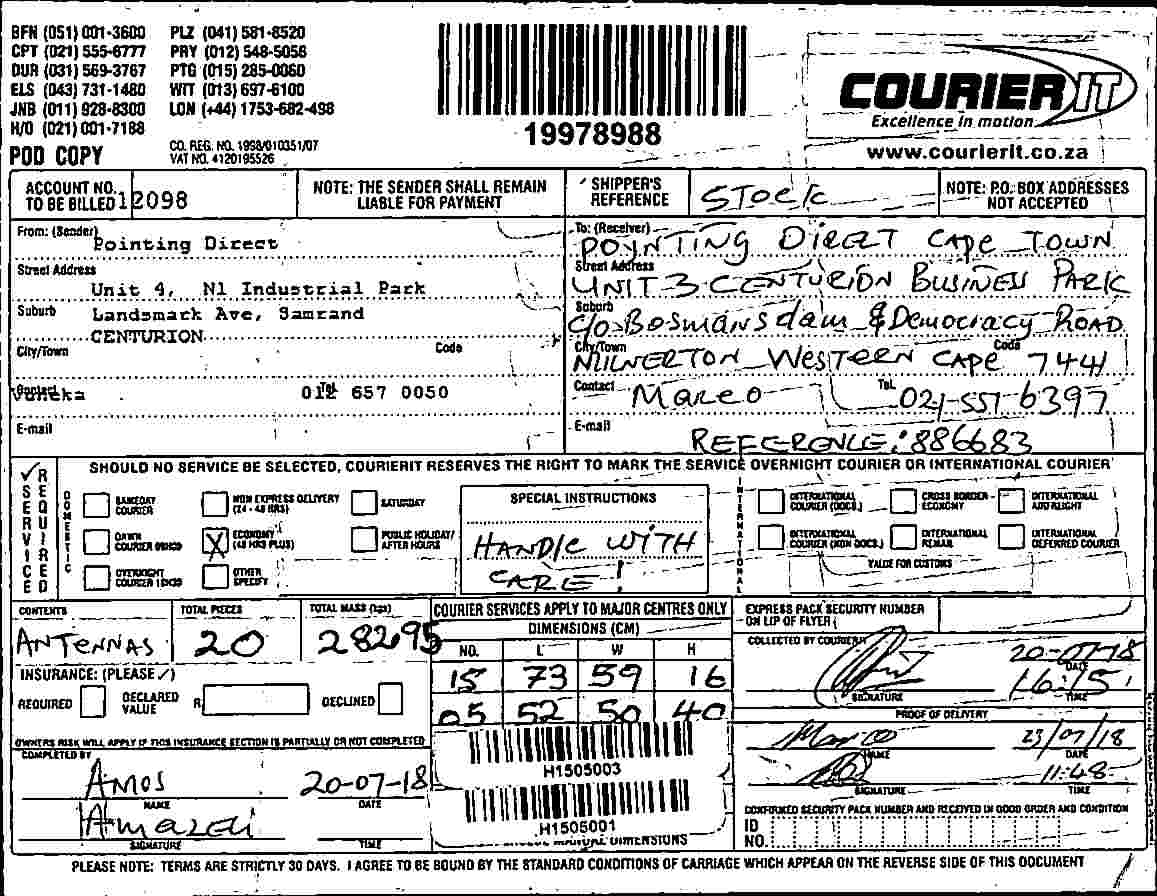 BFN (051) 001-3600 PLZ (041) 581-8520
CPT (021) 555-6777 PRY (012) 548-5058
DUR (031) 569-3767 PTG (015) 285-0060
ELS (043) 731-1480 WIT (013) 697-6100
JNB (011) 928-8300 LON (+44) 1753-682-498
H/O (021) 001-7188
POD COPY
CO. REG. NO. 1998/010351/07
VAT NO. 4120195526
19978988
COURIER IT
Excellence in motion
www.courierit.co.za
ACCOUNT NO. TO BE BILLED 12098
NOTE: THE SENDER SHALL REMAIN LIABLE FOR PAYMENT
SHIPPER'S REFERENCE STOCK
NOTE: P.O. BOX ADDRESSES NOT ACCEPTED
From: (Sender) Pointing Direct
Street Address
Unit 4, N1 Industrial Park
Suburb Landsmark Ave, Samrand
CENTURION
City/Town Code
Contact Tel.
012 657 0050
E-mail
To: (Receiver)
POYNTING DIRECT CAPE TOWN
Street Address
UNIT 3 CENTURION BUSINESS PARK
Suburb
C/O BOSMANSDAM & DEMOCRACY ROAD
City/Town Code
MILNERTON WESTERN CAPE 7441
Contact Marco Tel. 021-551-6397
E-mail
REFERENCE: 886683
SHOULD NO SERVICE BE SELECTED, COURIERIT RESERVES THE RIGHT TO MARK THE SERVICE OVERNIGHT COURIER OR INTERNATIONAL COURIER
✓ SERVICE REQUIRED
DOMESTIC
SAMEDAY COURIER
NON EXPRESS DELIVERY (24 - 48 HRS)
SATURDAY
DAWN COURIER
X ECONOMY (48 HRS PLUS)
PUBLIC HOLIDAY/ AFTER HOURS
OVERNIGHT COURIER
OTHER SPECIFY
SPECIAL INSTRUCTIONS
HANDLE WITH
CARE!
INTERNATIONAL
INTERNATIONAL COURIER (DOCS.)
CROSS BORDER - ECONOMY
INTERNATIONAL AIRFREIGHT
INTERNATIONAL COURIER (NON DOCS.)
INTERNATIONAL REMAIL
INTERNATIONAL DEFERRED COURIER
VALUE FOR CUSTOMS
CONTENTS TOTAL PIECES TOTAL MASS (kgs)
ANTENNAS 20
COURIER SERVICES APPLY TO MAJOR CENTRES ONLY
DIMENSIONS (CM)
NO. L W H
15 73 59 16
05 52 50 40
EXPRESS PACK SECURITY NUMBER
ON LIP OF FLYER
COLLECTED BY COURIERIT
20-07-18
DATE
16:15
SIGNATURE TIME
INSURANCE: (PLEASE ✓)
REQUIRED DECLARED VALUE R DECLINED
OWNERS RISK WILL APPLY IF THIS INSURANCE SECTION IS PARTIALLY OR NOT COMPLETED
COMPLETED BY
AMOS 20-07-18
NAME DATE
SIGNATURE TIME
H1505003
H1505001
DIMENSIONS
PROOF OF DELIVERY
Marco 23/07/18
NAME DATE
11:48
SIGNATURE TIME
CONFIRMED SECURITY PACK NUMBER AND RECEIVED IN GOOD ORDER AND CONDITION
ID NO.
PLEASE NOTE: TERMS ARE STRICTLY 30 DAYS. I AGREE TO BE BOUND BY THE STANDARD CONDITIONS OF CARRIAGE WHICH APPEAR ON THE REVERSE SIDE OF THIS DOCUMENT